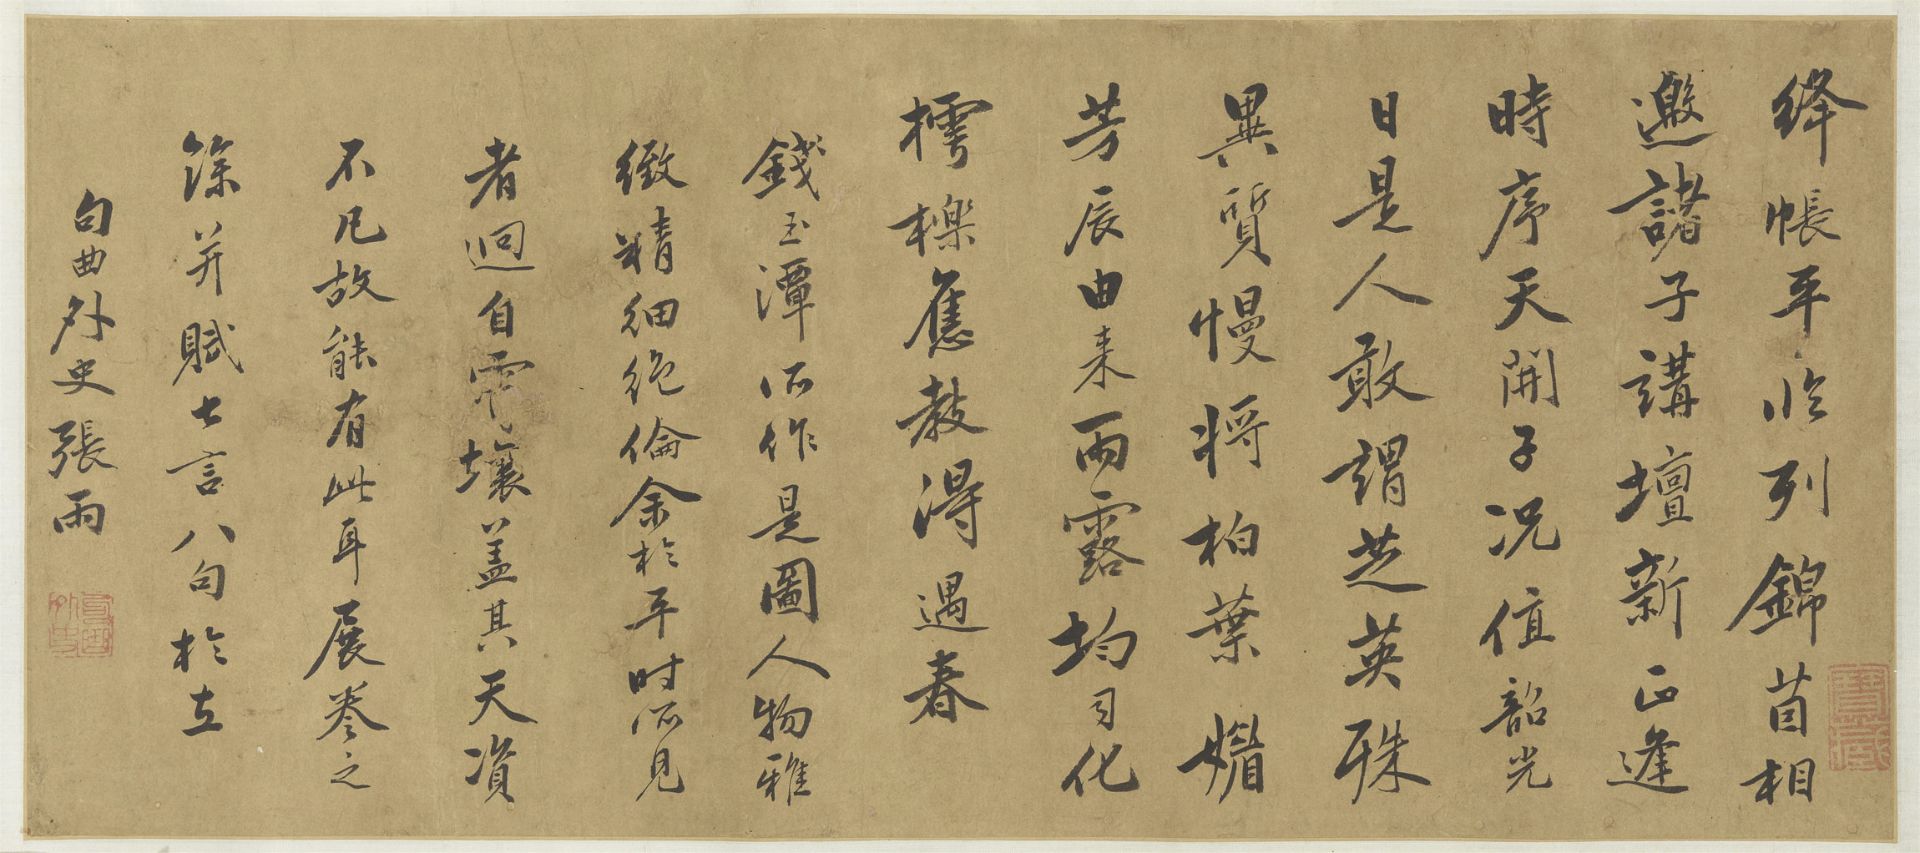 絳帳平臨列錦茵相
邀諸子講壇新正逢
時序天開子況值韶光
日是人敢謂芝英殊
異質慢將柏葉媚
芳辰由来雨露均司化
樗櫟應教得遇春
錢玉潭所作是圖人物雅
緻精細絕倫余於平时所見
者迥自霄壤盖其天資
不凡故能有此耳展卷之
馀并賦七言八句於左
句曲外史張雨
句曲外史